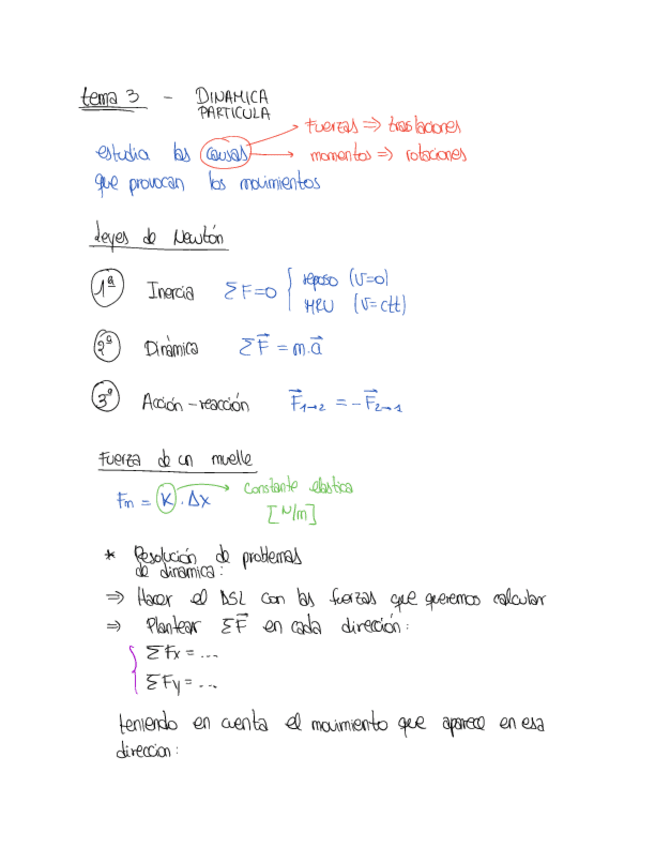 tema 3 - DINAMICA
PARTICULA
fuerzas ⇒ traslaciones
estudia las causas momentos ⇒ rotaciones
que provocan los movimientos
Leyes de Newtón
1ª Inercia ΣF=0 { reposo (v=0)
MRU (v=ctt)
2ª Dinámica ΣF⃗ = m.a⃗
3ª Acción-reacción F⃗1→2 = -F⃗2→1
Fuerza de un muelle
Fm = K . Δx constante elastica
[N/m]
* Resolución de problemas
de dinamica:
⇒ Hacer el DSL con las fuerzas que queremos calcular
⇒ Plantear ΣF⃗ en cada dirección:
{ ΣFx = ...
ΣFy = ...
teniendo en cuenta el movimiento que aparece en esa
direccion: